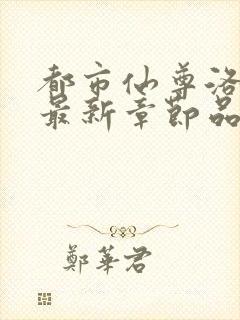 都市仙尊洛
最新章節品
鄭華君